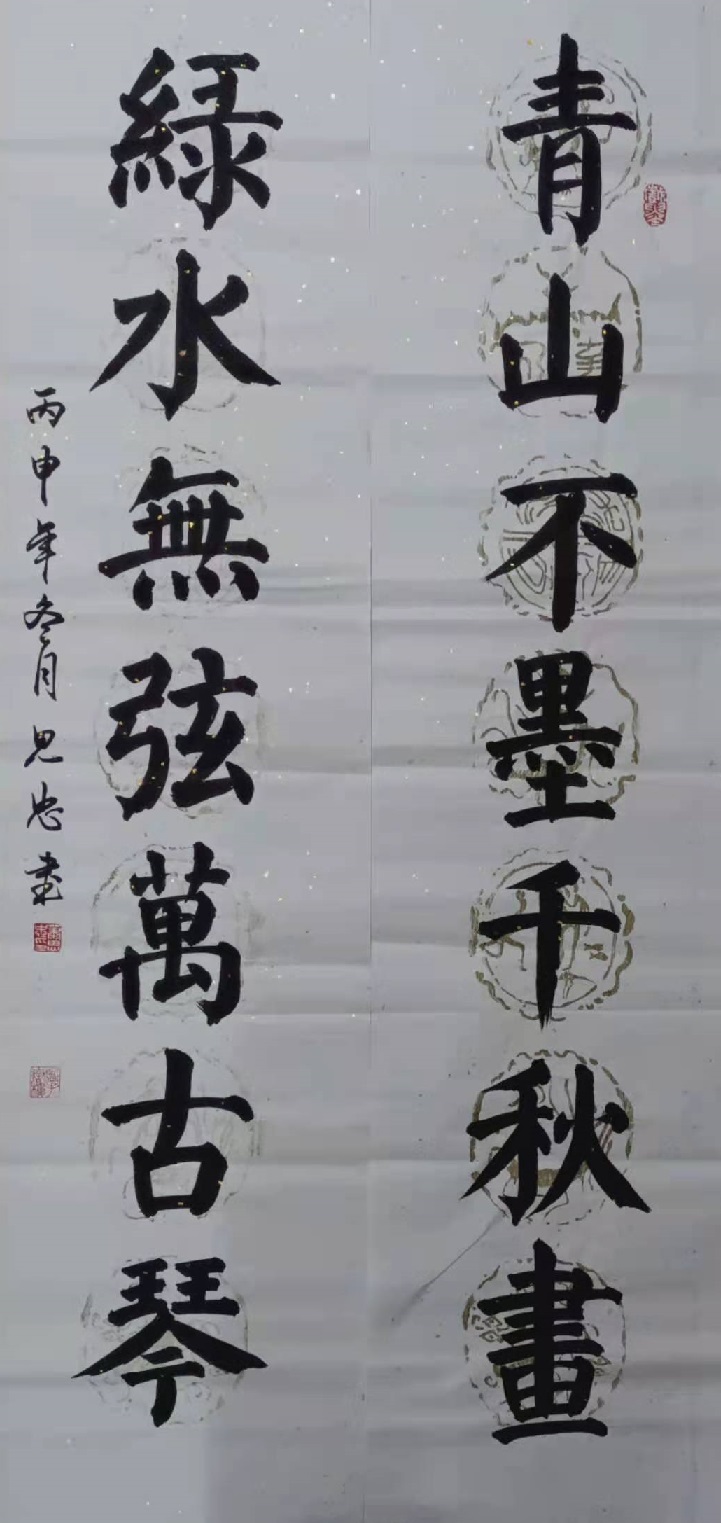 青山不墨千秋畫
綠水無弦萬古琴
丙申年冬月思忠書